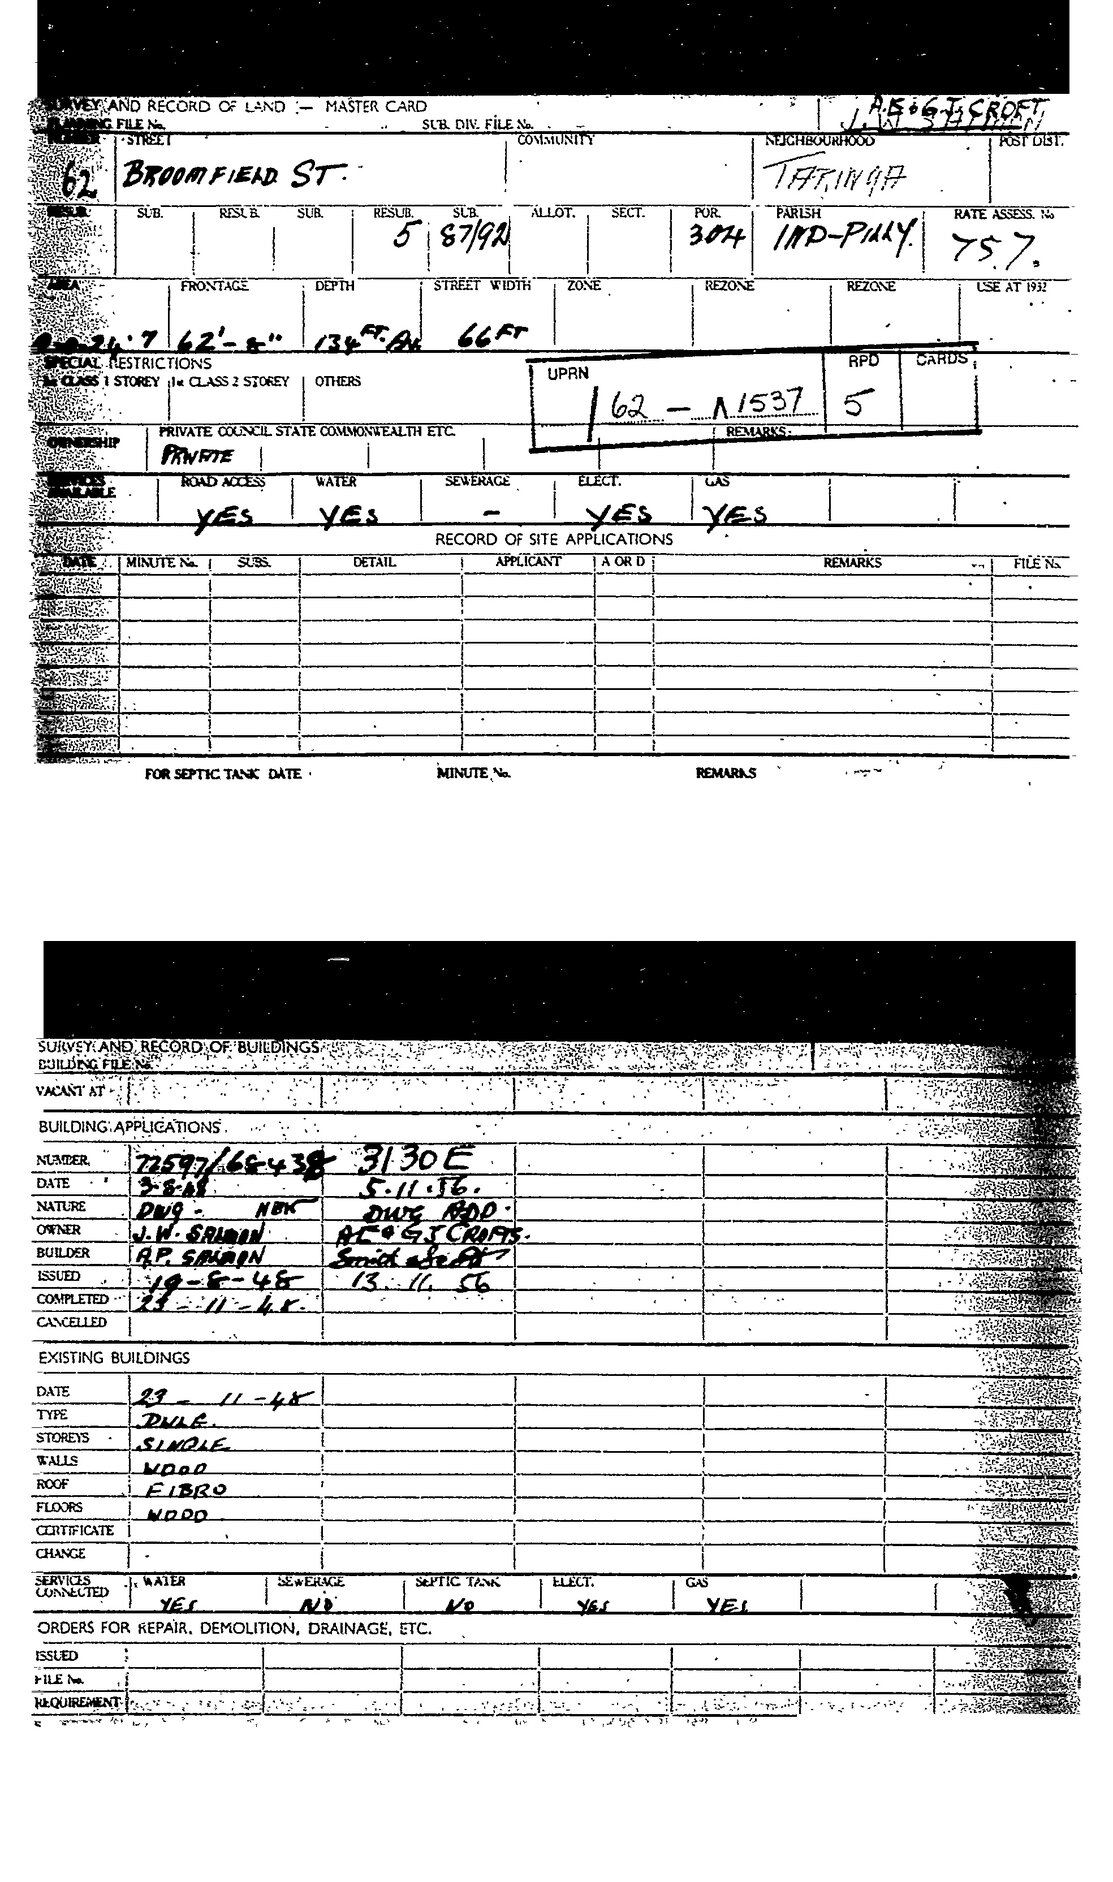 SURVEY AND RECORD OF LAND — MASTER CARD
A.E. & G.J. CROFT
PLANNING FILE No. SUB. DIV. FILE No.
NUMBER STREET COMMUNITY NEIGHBOURHOOD POST DIST.
62 BROOMFIELD ST. TARINGA
RESUB. SUB. RESUB. SUB. RESUB. SUB. ALLOT. SECT. POR. PARISH RATE ASSESS. No
5 87/92 304 IND-PILLY. 757.
AREA FRONTAGE DEPTH STREET WIDTH ZONE REZONE REZONE USE AT 1932
62'-8" 134 FT. Av. 66 FT
SPECIAL RESTRICTIONS
1st CLASS 1 STOREY 1st CLASS 2 STOREY OTHERS
UPRN RPD CARDS
162 - 1537 5
OWNERSHIP PRIVATE COUNCIL STATE COMMONWEALTH ETC. REMARKS
PRIVATE
SERVICES AVAILABLE ROAD ACCESS WATER SEWERAGE ELECT. GAS
YES YES - YES YES
RECORD OF SITE APPLICATIONS
DATE MINUTE No. SUBS. DETAIL APPLICANT A OR D REMARKS FILE No.
FOR SEPTIC TANK DATE MINUTE No. REMARKS
SURVEY AND RECORD OF BUILDINGS
BUILDING FILE No.
VACANT AT
BUILDING APPLICATIONS
NUMBER 72597/68438 3130E
DATE 3-8-48 5.11.56.
NATURE DWG - DWG ADD.
OWNER J.W. SALMON AE & GJ CROFTS.
BUILDER A.P. SALMON Smith &
ISSUED 19-8-48 13.11.56
COMPLETED 23-11-48.
CANCELLED
EXISTING BUILDINGS
DATE 23-11-48
TYPE DWLE.
STOREYS SINGLE
WALLS WOOD
ROOF FIBRO
FLOORS WOOD
CERTIFICATE
CHANGE
SERVICES CONNECTED WATER SEWERAGE SEPTIC TANK ELECT. GAS
YES NO NO YES YES
ORDERS FOR REPAIR, DEMOLITION, DRAINAGE, ETC.
ISSUED
FILE No.
REQUIREMENT